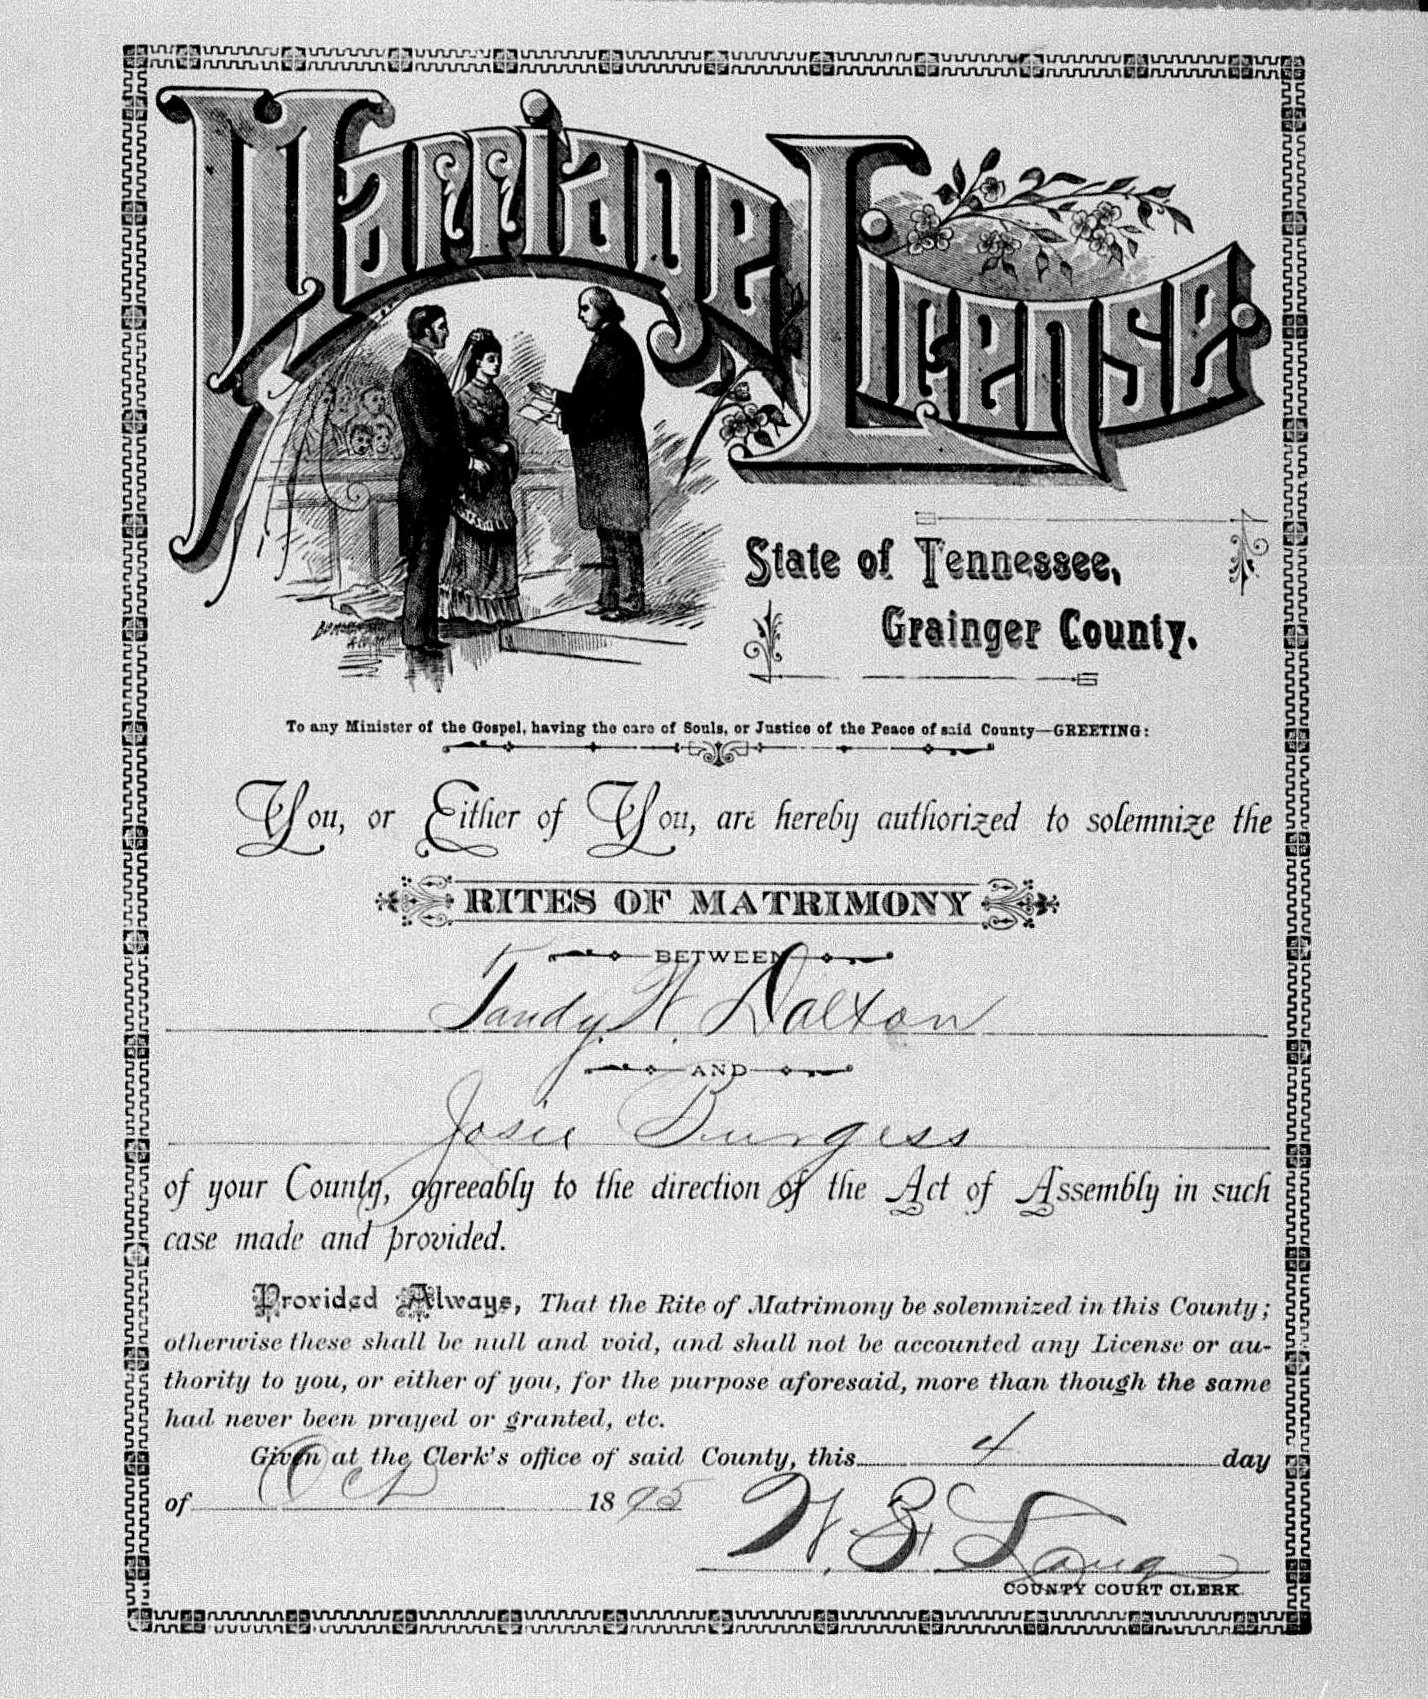 Marriage License.
State of Tennessee,
Grainger County.
To any Minister of the Gospel, having the care of Souls, or Justice of the Peace of said County—GREETING:
You, or Either of You, are hereby authorized to solemnize the
RITES OF MATRIMONY
BETWEEN
Tandy W. Dalton
AND
Josie Burgess
of your County, agreeably to the direction of the Act of Assembly in such
case made and provided.
Provided Always, That the Rite of Matrimony be solemnized in this County;
otherwise these shall be null and void, and shall not be accounted any License or au-
thority to you, or either of you, for the purpose aforesaid, more than though the same
had never been prayed or granted, etc.
Given at the Clerk's office of said County, this 4 day
of Oct 1895
COUNTY COURT CLERK.